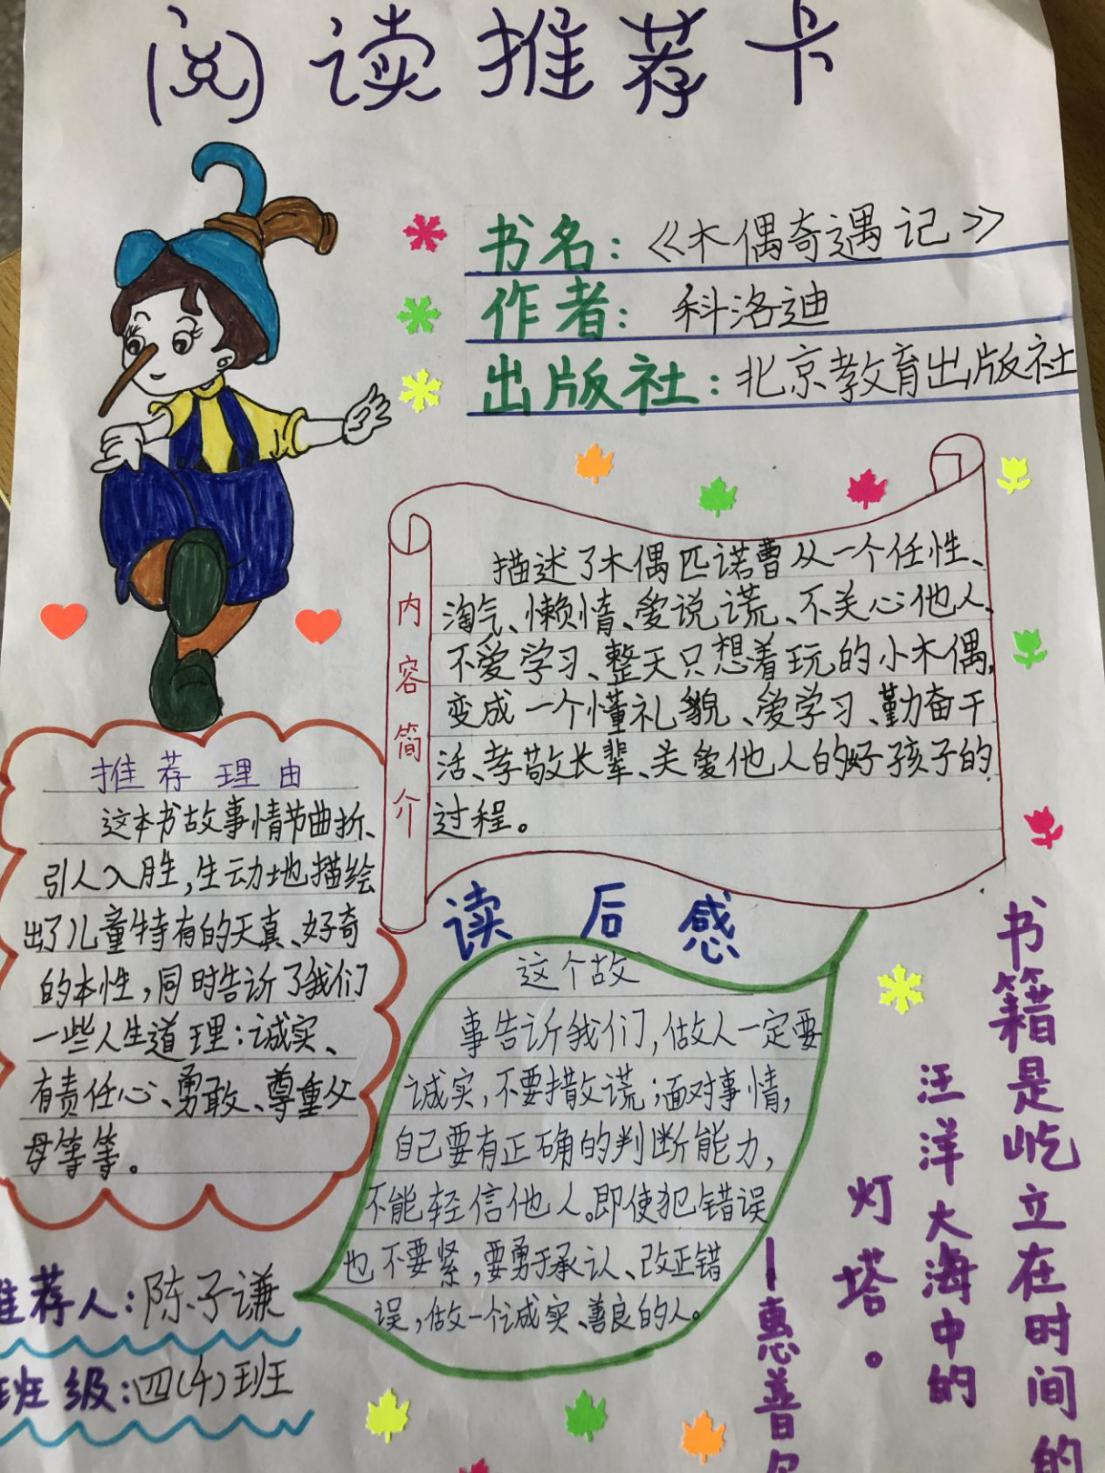 阅读推荐卡
书名：《木偶奇遇记》
作者：科洛迪
出版社：北京教育出版社
内容简介
描述了木偶匹诺曹从一个任性、
淘气、懒惰、爱说谎、不关心他人、
不爱学习、整天只想着玩的小木偶,
变成一个懂礼貌、爱学习、勤奋干
活、孝敬长辈、关爱他人的好孩子的
过程。
推荐理由
这本书故事情节曲折、
引人入胜,生动地描绘
出了儿童特有的天真、好奇
的本性,同时告诉了我们
一些人生道理:诚实、
有责任心、勇敢、尊重父
母等等。
读后感
这个故
事告诉我们,做人一定要
诚实,不要撒谎;面对事情,
自己要有正确的判断能力,
不能轻信他人。即使犯错误
也不要紧,要勇于承认、改正错
误,做一个诚实、善良的人。
书籍是屹立在时间的
汪洋大海中的
灯塔。
—惠普
推荐人:陈子谦
班级:四(4)班